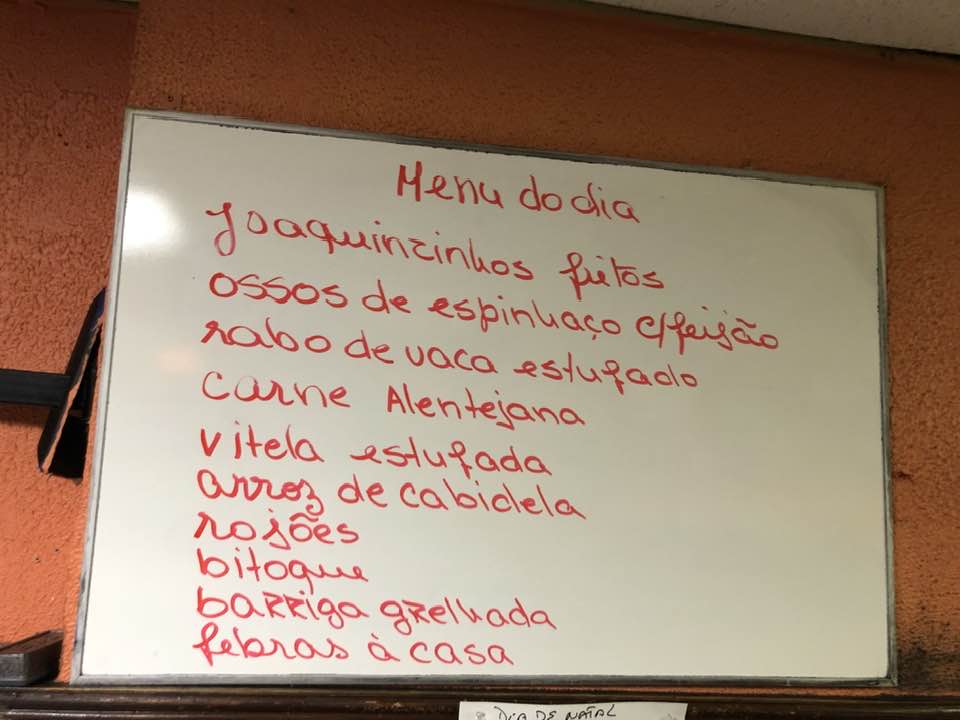 Menu do dia
Joaquinzinhos fritos
ossos de espinhaço c/feijão
rabo de vaca estufado
carne Alentejana
vitela estufada
arroz de cabidela
rojões
bitoque
barriga grelhada
febras à casa
DIA DE NATAL